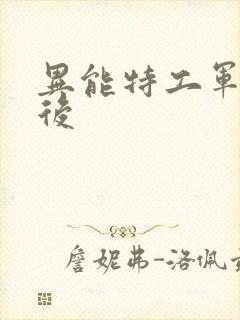 異能特工軍
後
詹妮弗-洛佩茲